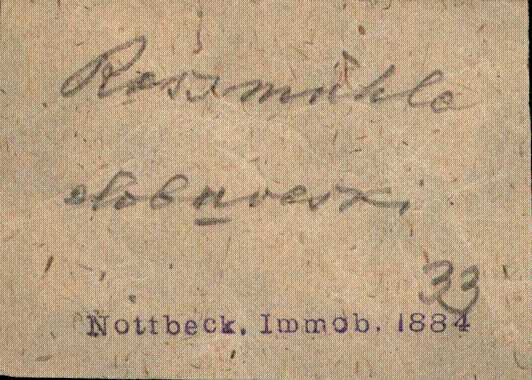 Rossmühle
Hobuveski
33
Nottbeck. Immob. 1884